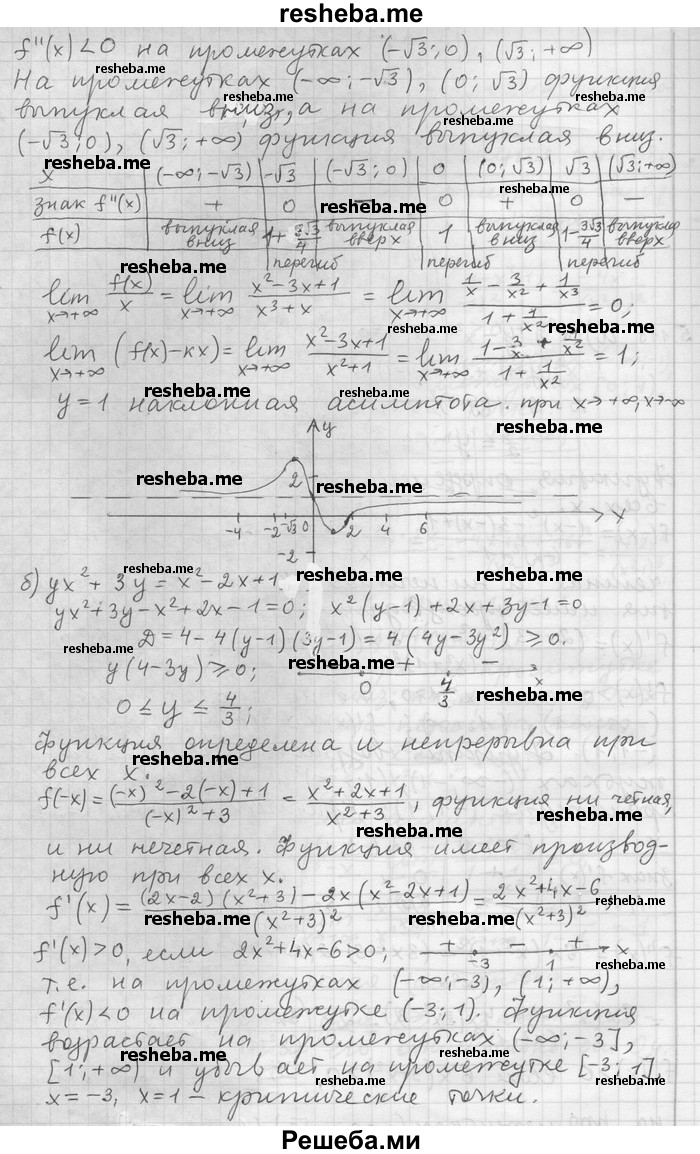 resheba.me
f''(x) < 0 на промежутках (-√3; 0), (√3; +∞)
На промежутках (-∞; -√3), (0; √3) функция
выпуклая вниз, а на промежутках
(-√3; 0), (√3; +∞) функция выпуклая вниз.
x | (-∞; -√3) | -√3 | (-√3; 0) | 0 | (0; √3) | √3 | (√3; +∞)
знак f''(x) | + | 0 | − | 0 | + | 0 | −
f(x) | выпуклая вниз | 1+3√3/4 перегиб | выпуклая вверх | 1 перегиб | выпуклая вниз | 1-3√3/4 перегиб | выпукла вверх
lim x→+∞ f(x)/x = lim x→+∞ (x²-3x+1)/(x³+x) = lim x→+∞ (1/x - 3/x² + 1/x³)/(1 + 1/x²) = 0;
lim x→+∞ (f(x)-кx) = lim x→+∞ (x²-3x+1)/(x²+1) = lim x→+∞ (1 - 3/x + 1/x²)/(1 + 1/x²) = 1;
y=1 наклонная асимптота при x→+∞, x→-∞
y
2
-4 -2 -√3 0 2 4 6 x
-2
б) yx² + 3y = x² - 2x + 1
yx² + 3y - x² + 2x - 1 = 0; x²(y-1) + 2x + 3y - 1 = 0
Д = 4 - 4(y-1)(3y-1) = 4(4y-3y²) ≥ 0.
y(4-3y) ≥ 0; − + − 0 4/3 x
0 ≤ y ≤ 4/3;
Функция определена и непрерывна при
всех x.
f(-x) = ((-x)² - 2(-x) + 1)/((-x)² + 3) = (x²+2x+1)/(x²+3), функция ни четная,
и ни нечетная. Функция имеет производ-
ную при всех x.
f'(x) = ((2x-2)(x²+3) - 2x(x²-2x+1))/(x²+3)² = (2x²+4x-6)/(x²+3)²,
f'(x) > 0, если 2x²+4x-6 > 0; + − + -3 1 x
т.е. на промежутках (-∞; -3), (1; +∞),
f'(x) < 0 на промежутке (-3; 1). Функция
возрастает на промежутках (-∞; -3],
[1; +∞) и убывает на промежутке [-3; 1],
x = -3, x = 1 – критические точки.
Решеба.ми